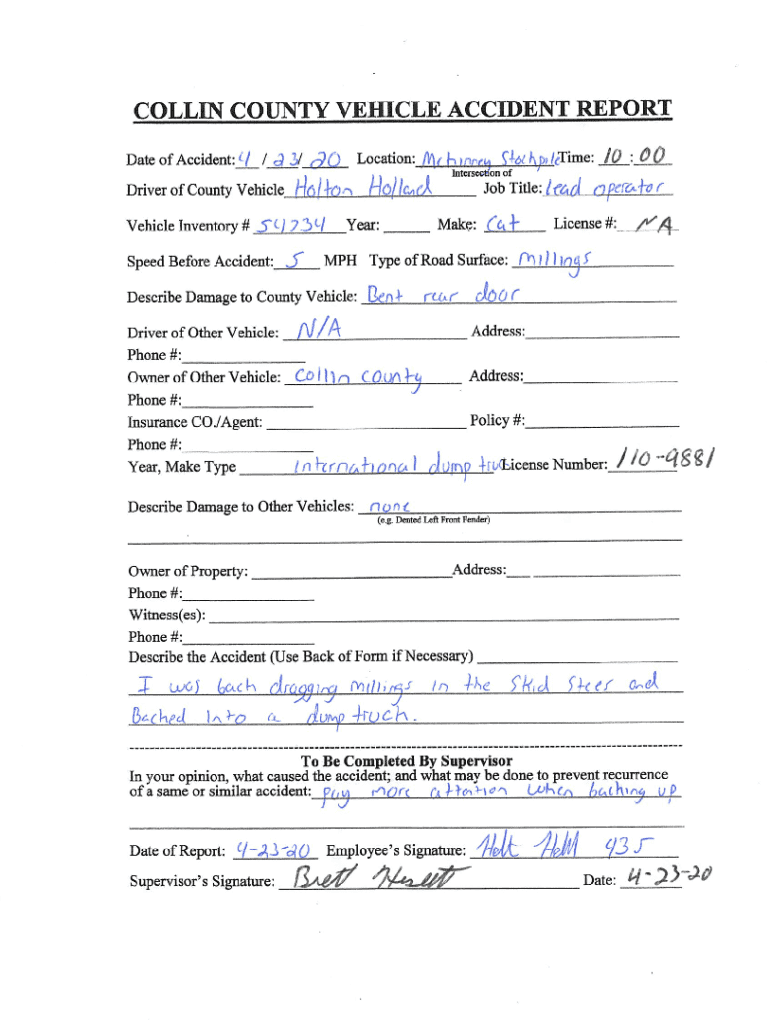 COLLIN COUNTY VEHICLE ACCIDENT REPORT
Date of Accident: 4 / 23 / 20 Location: Mckinney Stockpile Time: 10 : 00
Intersection of
Driver of County Vehicle Holton Holland Job Title: Lead operator
Vehicle Inventory # 54734 Year: ______ Make: Cat License #: NA
Speed Before Accident: 5 MPH Type of Road Surface: Millings
Describe Damage to County Vehicle: Bent rear door
Driver of Other Vehicle: N/A Address:
Phone #:
Owner of Other Vehicle: Collin County Address:
Phone #:
Insurance CO./Agent: Policy #:
Phone #:
Year, Make Type International dump truc License Number: 110-9881
Describe Damage to Other Vehicles: none
(e.g. Dented Left Front Fender)
Owner of Property: Address:
Phone #:
Witness(es):
Phone #:
Describe the Accident (Use Back of Form if Necessary)
I was back dragging millings in the Skid Steer and
Backed Into a dump truck.
To Be Completed By Supervisor
In your opinion, what caused the accident; and what may be done to prevent recurrence
of a same or similar accident: pay more attation when backing up
Date of Report: 4-23-20 Employee's Signature: 435
Supervisor's Signature: Brett Date: 4-23-20